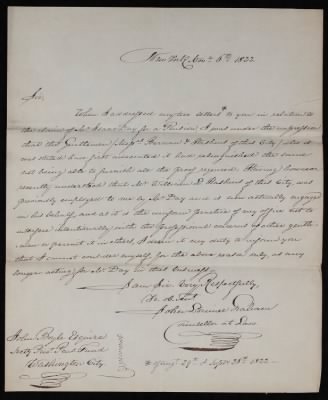 New York Nov. 6th 1822
Sir,
When I addressed my two letters * to you in relation to
the claim of Mr. Day for a Pension, I was under the impression
that the Gentlemen of this City, who it
was stated had first presented it had relinquished the same
not being able to furnish all the proof required. Having however
recently understood that Mr. William of this City was
previously employed to me by Mr. Day and is now actually engaged
in his behalf, and as it is the uniform practice of my office not to
interfere intentionally with the professional concerns of other gentle-
men or permit it in others, I deem it my duty to inform you
that I cannot consider myself, for the above reason only, as any
longer acting for Mr. Day in that business.
I am Sir Very Respectfully,
Yr. O. Servt.
John
Counsellor at Law
John Boyle Esquire
Secty Navy Pens. Fund
Washington City.
* Augt. 29th & Septr 28th 1822